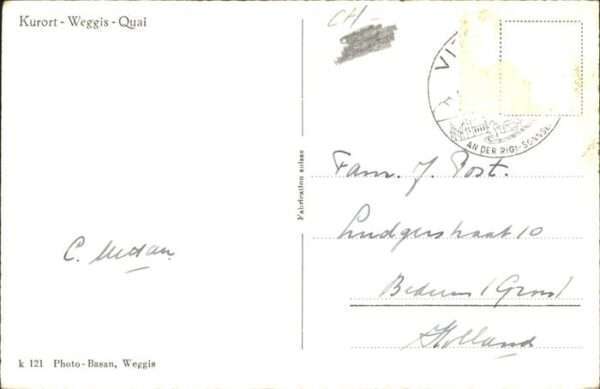 Kurort - Weggis - Quai
CH -
VIT
AN DER RIGI-SONNSE
Fabrication suisse
Fam. J. Post.
Ludgerstraat 10
Bedum (Gron)
Holland
C.
k 121 Photo-Basan, Weggis